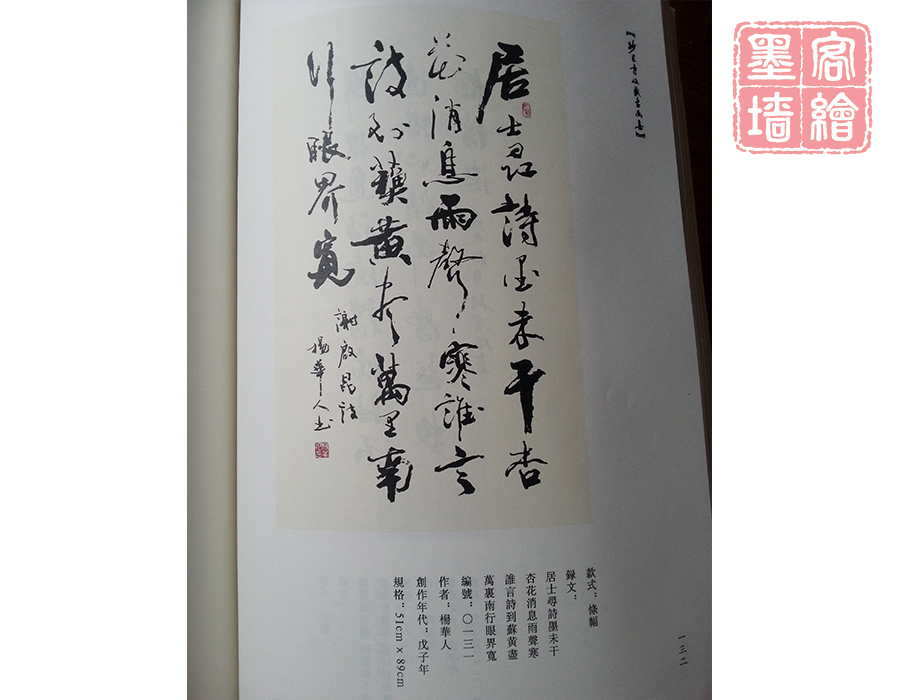 客繪
墨墙
居士尋詩墨未干杏
花消息雨聲寒誰言
詩到蘇黃盡萬里南
行眼界寬
謝啟昆詩
楊華人书
款式：條幅
録文：
居士尋詩墨未干
杏花消息雨聲寒
誰言詩到蘇黃盡
萬裏南行眼界寬
編號：〇一三一
作者：楊華人
創作年代：戊子年
規格：51cm×89cm
一三二